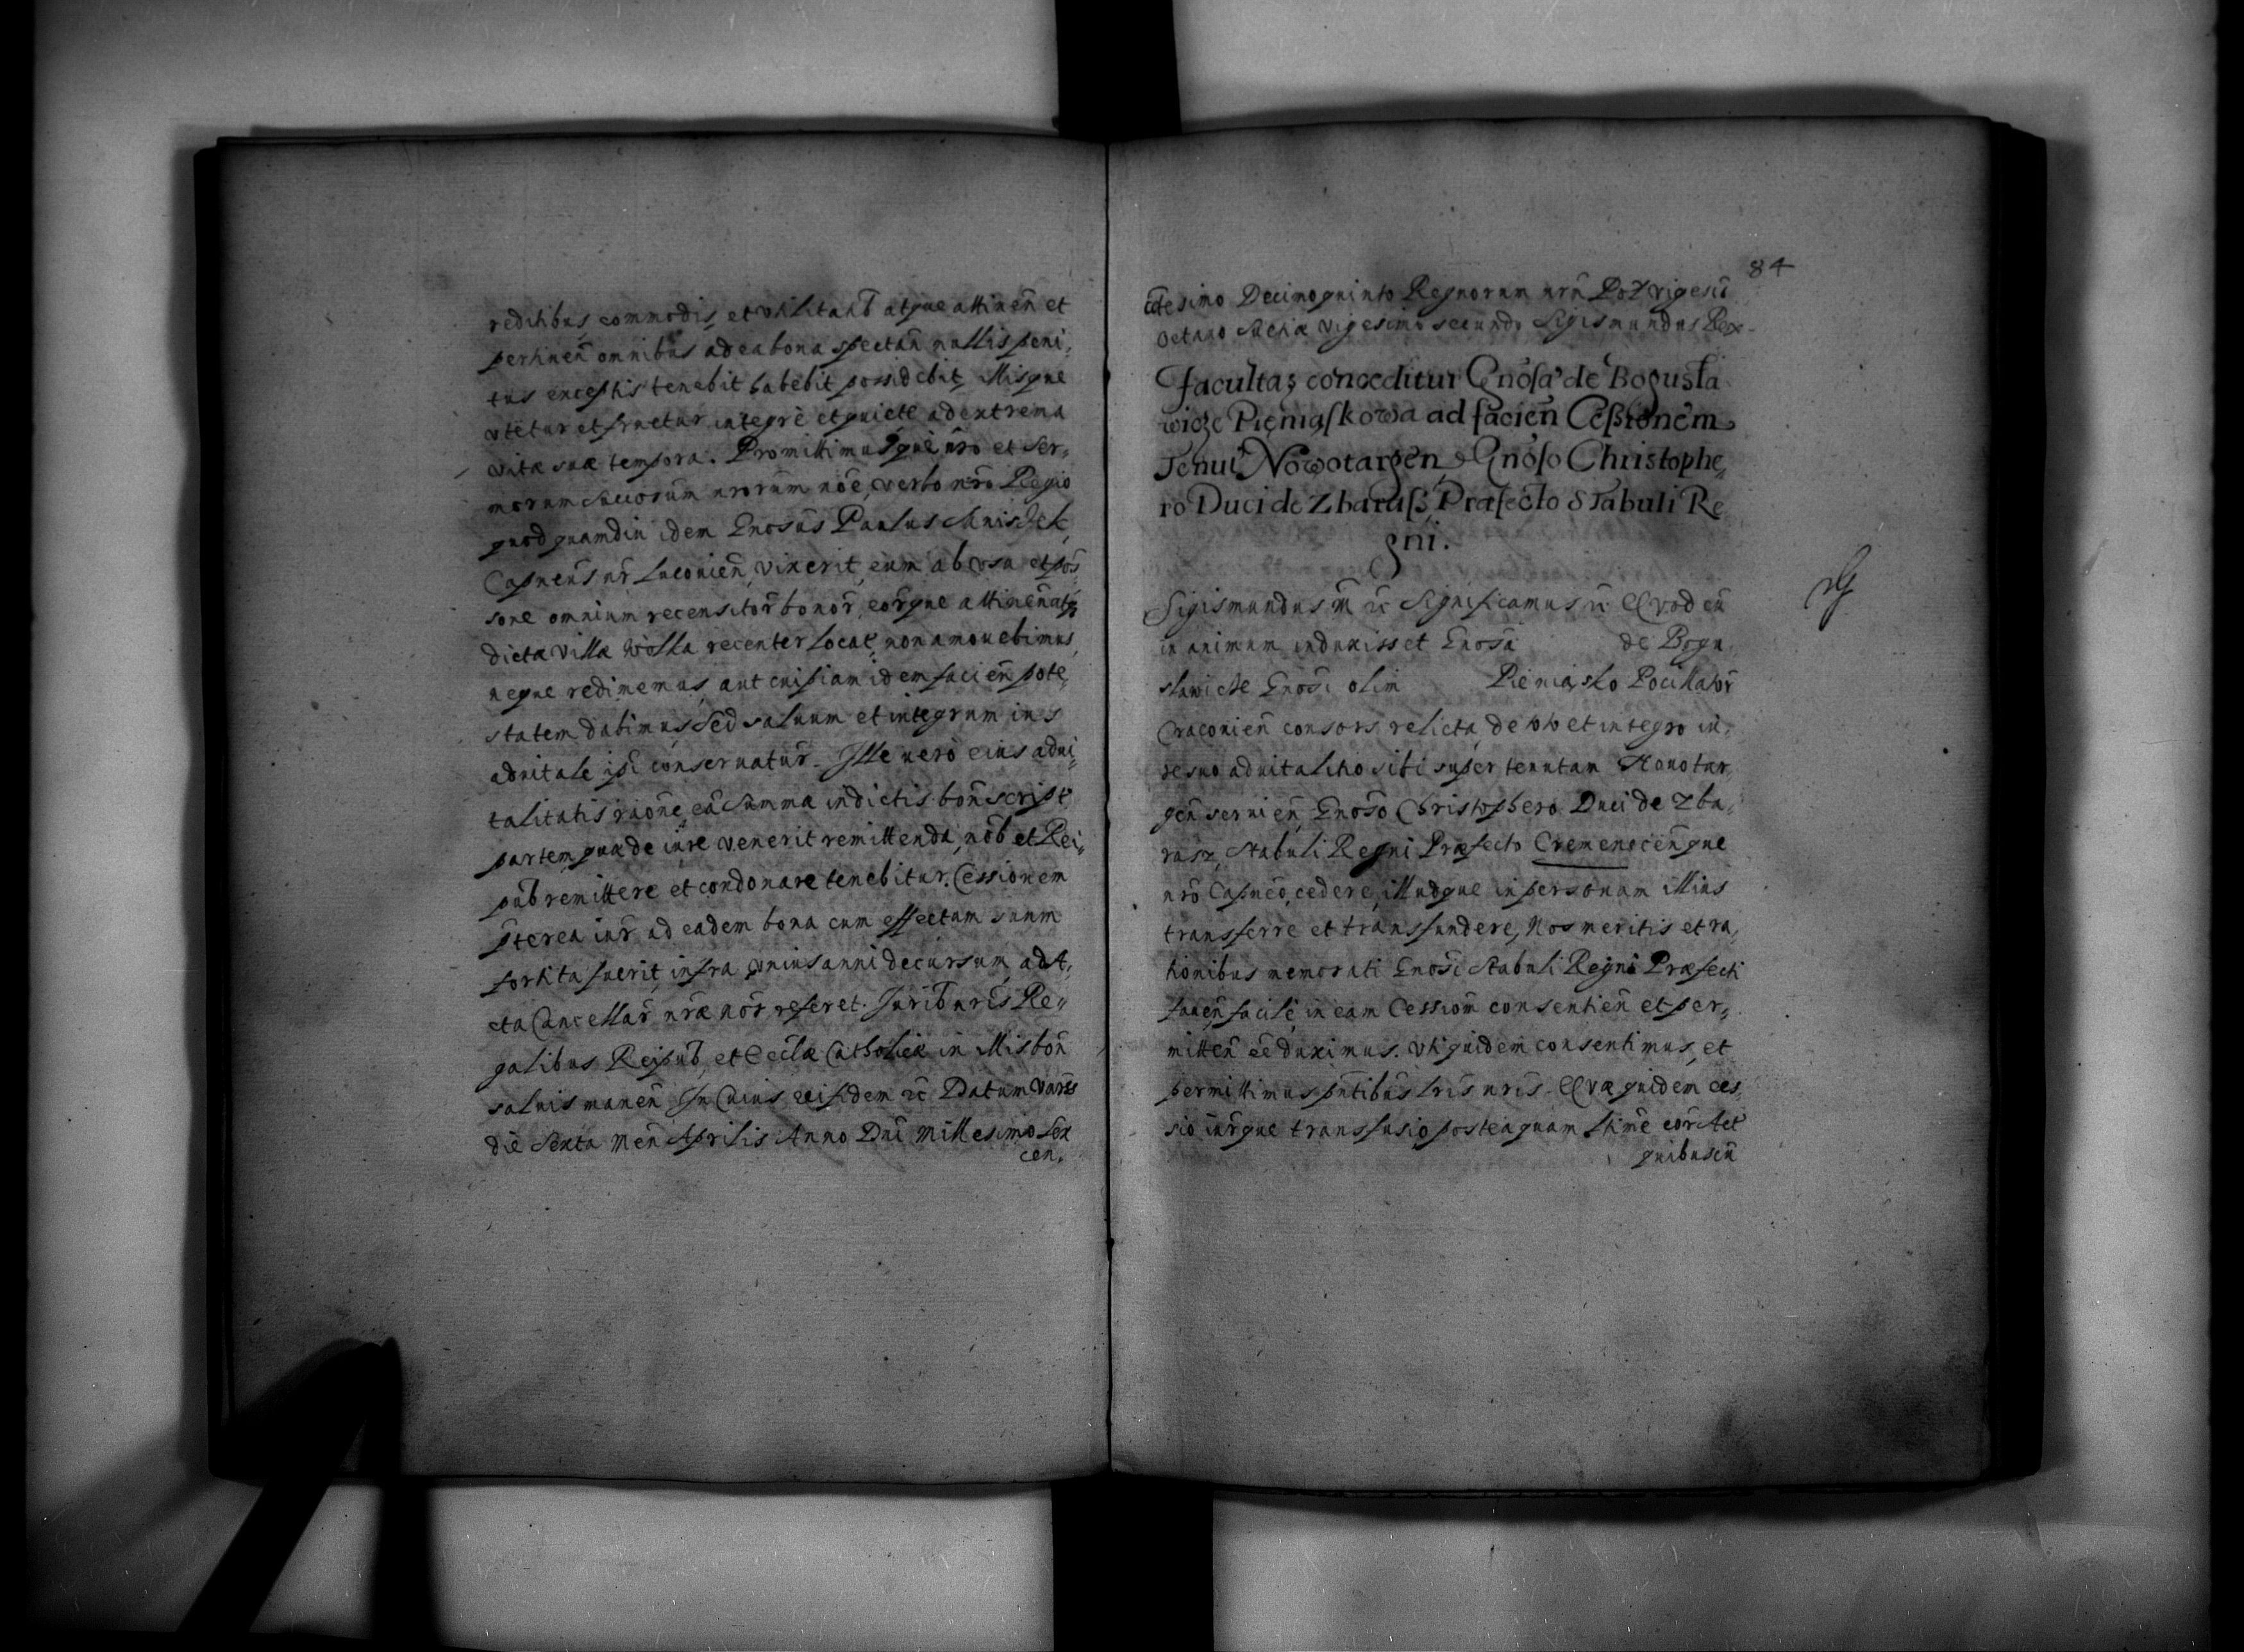 reditibus commodis, et vtilitatib atque attinen̄ et
pertinen̄ omnibus ad ea bona spectan̄ nullis peni„
tus exceptis tenebit habebit possidebit, illisque
vtetur et fruetur integrè et quietè ad extrema
vitæ suæ tempora. Promittimusque nr̄o et Ser„
morum Succorum nrorum nōe, verbo nr̄o Regio
quod quamdiu idem Gnosus Paulus Mniszek,
Capneus nr̄ Luconien̄, vixerit, eum ab vsu et pos„
sone omnium recensitor̄ bonor̄, eorque attinen̄ atq
dictæ villæ Wolka recenter locat, non amouebimus,
neque redimemus, aut cuipiam idem facien̄ pote„
statem dabimus, Sed saluum et integrum ius
aduitale ipi conseruatur̄. Ille verò eius adui„
talitatis raōne, eā Summæ in dictis bon̄ script
partem, quæ de iure venerit remittenda, nob̄ et Rei„
pub̄ remittere et condonare tenebitur. Cessionem
p̄terea iur̄ ad eadem bona cum effectum suum
sortita fuerit, infra vnius anni decursum, ad A„
cta Cancellar̄ nr̄æ nor̄ referet. Jurib nr̄is Re„
galibus Reipub̄, et Eccl̄æ Catholicæ in illis bon̄
saluis manen̄. In Cuius rei fidem ꝛc̄ Datum Vars
die Sexta Men̄ Aprilis Anno Dnī Millesimo Sex
cen„
84
ctesimo Decimoquinto Regnorum nrn̄ Pol vigesiō
octauo Suetiæ vigesimo secundo Sigismundus Rex
Facultas conceditur Gnosa de Bogusła
wicze Pieniąskowa ad facien̄ Cessionem
Tenut Nowotargen Gnoso Christophe„
ro Duci de Zbarasz, Præfecto Stabuli Re
gni.
Sigismundus III ꝛc̄ Significamus ꝛc̄ Quod cū
in animum induxisset Gnosa de Bogu
slawicze Gnosi olim Pieniąsko Pocillator̄
Craconien̄ consors relicta, de toto et integro iu„
re suo aduitalitio sibi super tenutam Nouotar„
gen̄ seruien̄, Gnoso Christophero Duci de Zba„
rasz, Stabuli Regni Præfecto Cremenecen̄que
nr̄o Capneo, cedere, illudque in personam illius
transferre et transfundere, Nos meritis et ra„
tionibus memorati Gnosi Stabuli Regni Præfecti
fauen̄ facilè, in eam Cessiom̄ consentien̄ et per„
mitten̄ eē duximus. Vti quidem consentimus, et
permittimus pn̄tibus lr̄is nr̄is. Quæ quidem ces„
sio iurque transfusio posteaquam ltimē cor̄ Act
quibuscū